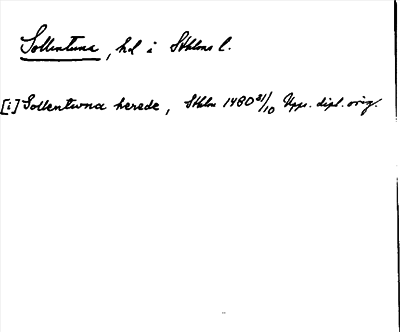 Sollentuna, hd i Sthlms l.
[i] Sollentwna herade, Sthlm 1480 31/10 Upps. dipl. orig.